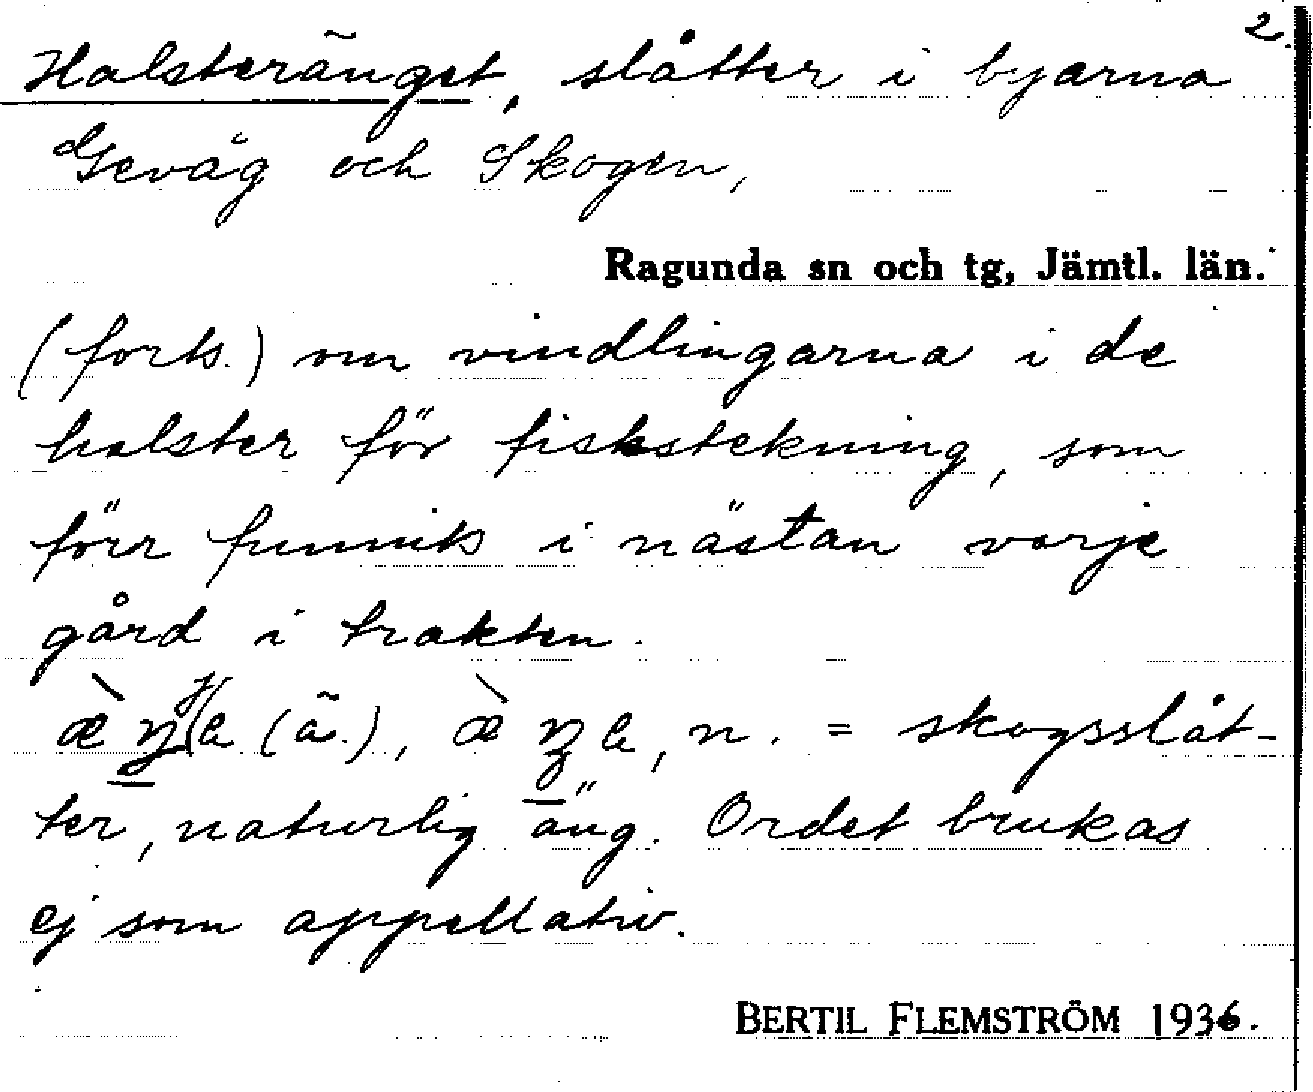 2.
Halsteränget, slåtter i byarna
Gevåg och Skogen,
Ragunda sn och tg, Jämtl. län.
(forts.) om vindlingarna i de
halster för fiskstekning, som
förr funnits i nästan varje
gård i trakten.
(ä.), n. = skogsslåt-
ter, naturlig äng. Ordet brukas
ej som appellativ.
BERTIL FLEMSTRÖM 1936.